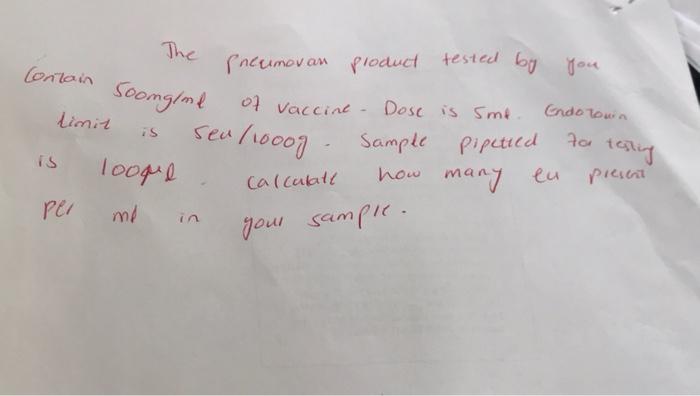 The Pneumovan product tested by you
Contain 500mg/ml of vaccine - Dose is 5ml. Endotoxin
limit is 5eu/1000g. Sample pipetted for testing
is 100µl. Calculate how many eu present
per ml in your sample.